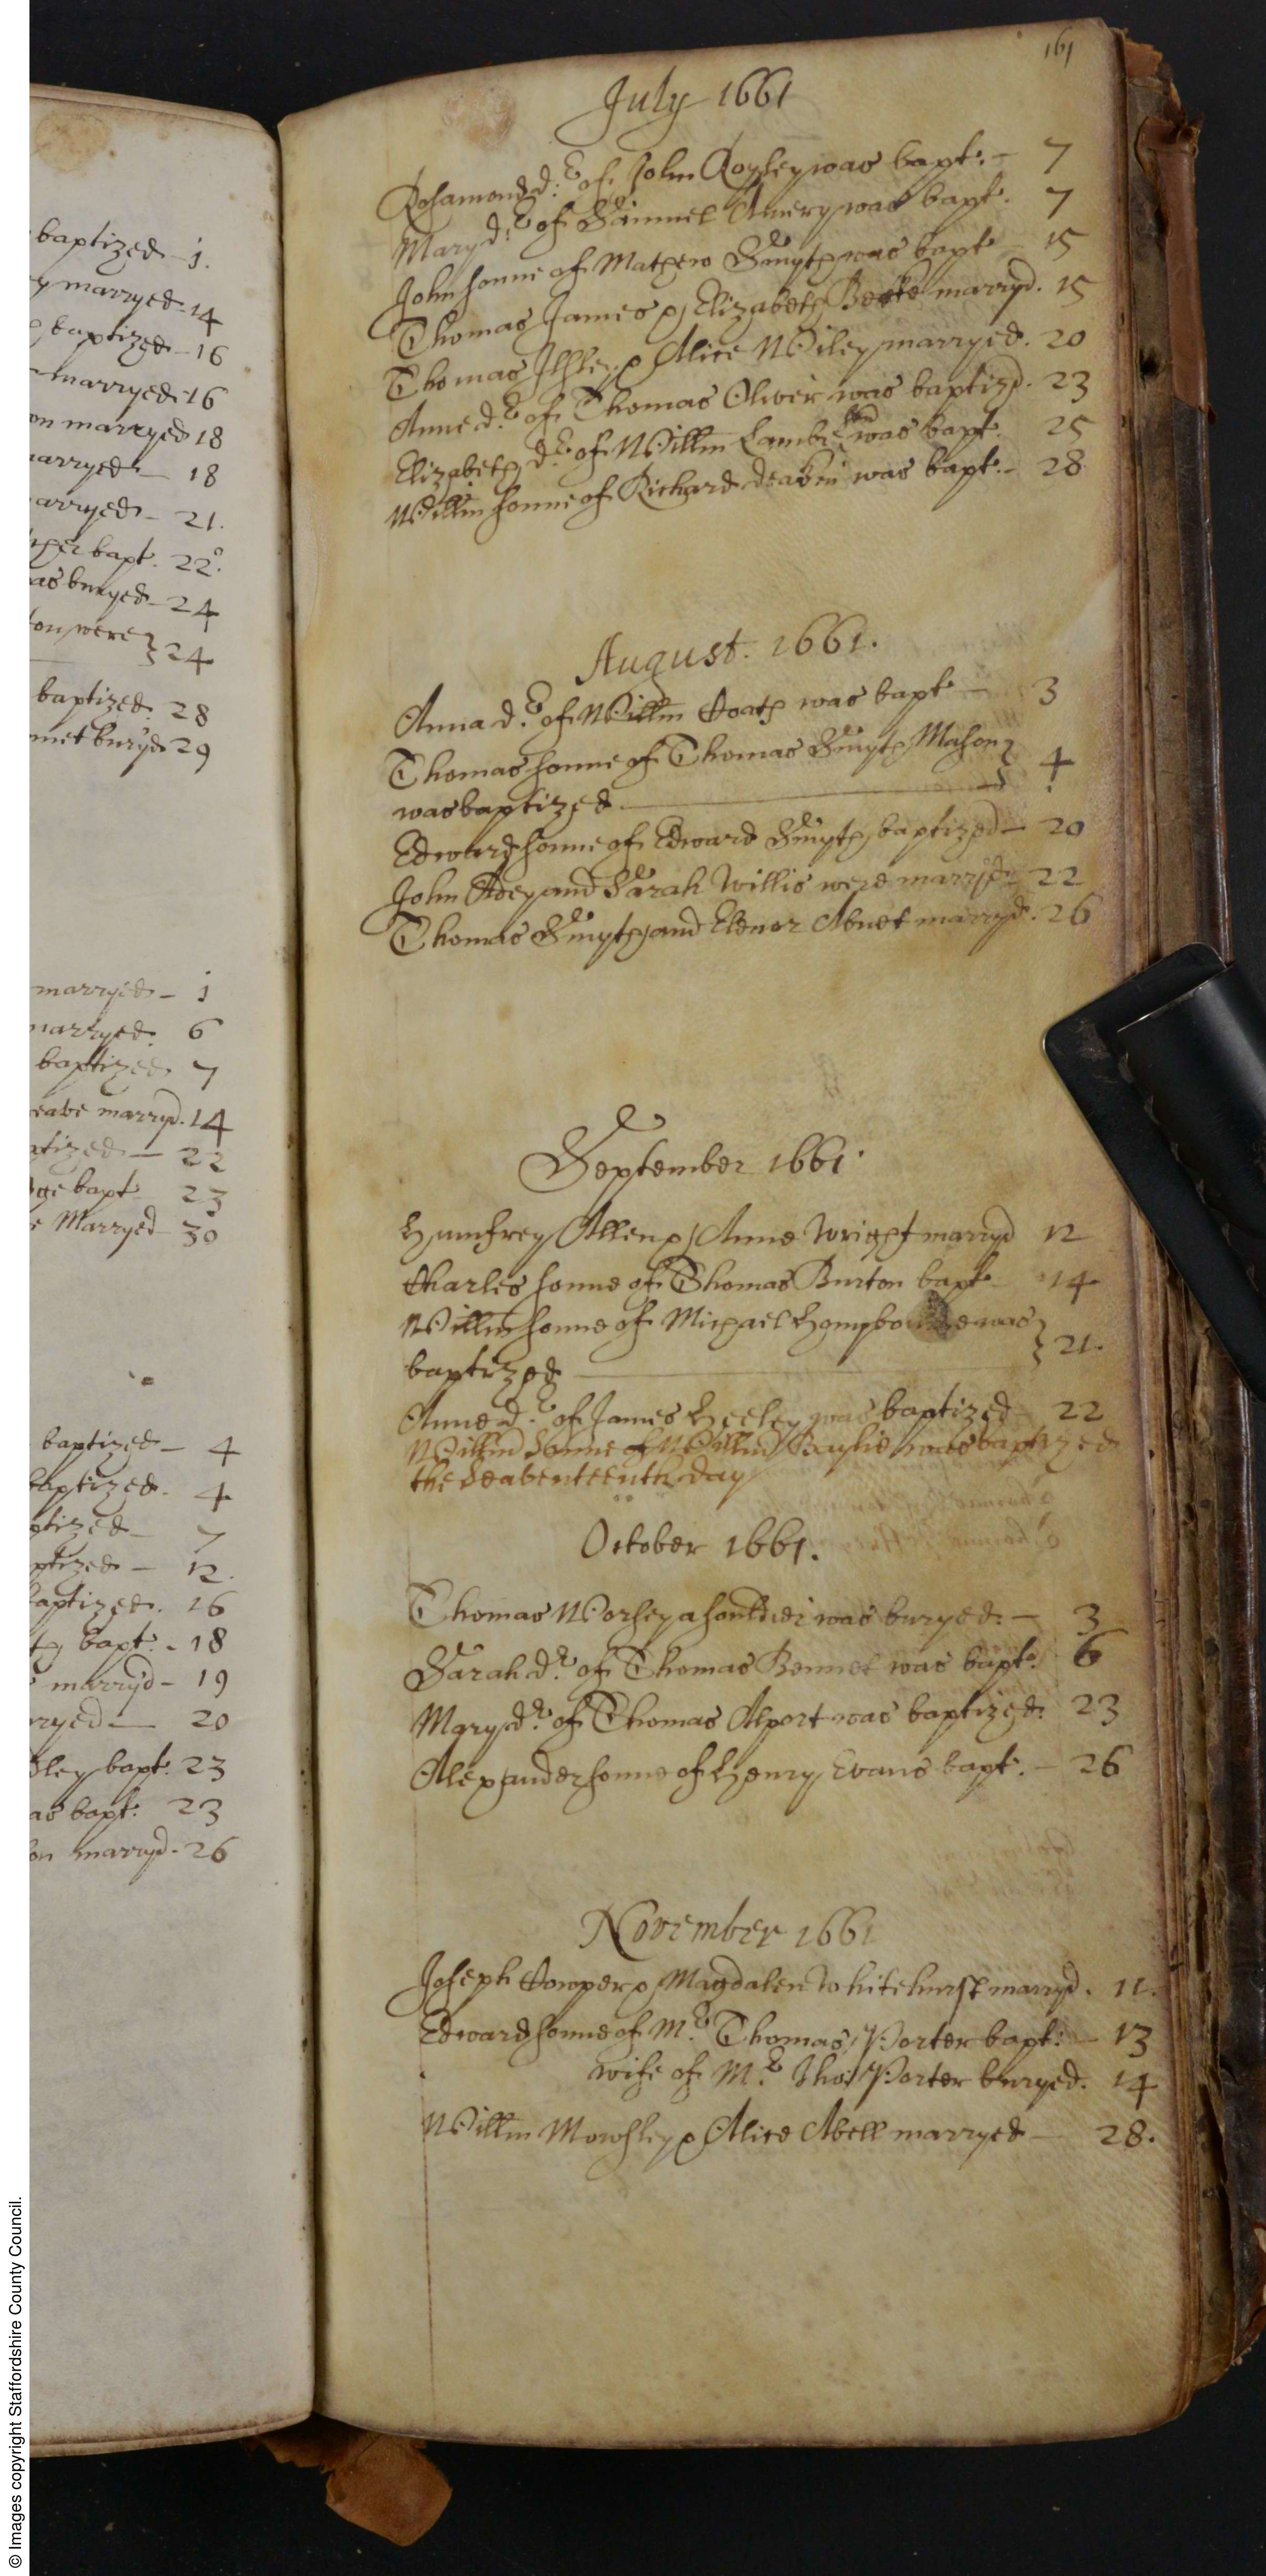 baptized - 1.
marryed - 14
baptized - 16
marryed - 16
on marryed 18
marryed - 18
arryed - 21.
bapt. 22.
as buryed - 24
on were } 24
baptized. 28
net buryd 29
marryed - 1
marryed. 6
baptized 7
marryd. 14
ptized - 22
ge bapt 23
Marryed - 30
baptized - 4
baptized. 4
ptized - 7
ptized - 12.
baptized. 16
bapt. - 18
marryd - 19
rryed - 20
ley bapt. 23
as bapt: 23
on marryd - 26
161
July 1661
Rosamond d:r of John Royley was bapt. - 7
Mary d:r of Samuel Amery was bapt. 7
John sonne of Mathew Smyth was bapt - 15
Thomas James & Elizabeth marryd. 15
Thomas Illsley & Alice Wiley marryed. 20
Anne d.r of Thomas Oliver was baptizd. 23
Elizabeth d.r of Willm was bapt. 25
Willm sonne of Richard deakin was bapt. - 28
August. 1661.
Anna d.r of Willm Coats was bapt - 3
Thomas sonne of Thomas Smyth Mason } 4
was baptized.
Edward sonne of Edward Smyth baptized - 20
John Adey and Sarah Willis were marryd - 22
Thomas Smyth and Elenor Abnet marryd. 26
September 1661.
Humfrey Allen & Anne Wright marryd 12
Charles sonne of Thomas Burton bapt - 14
Willm sonne of Michael was } 21.
baptized
Anne d.r of James Heeley was baptized - 22
Willm Sonne of Willm Baylie was baptized
the Seaventeenth day
October 1661.
Thomas Worsey a souldier was buryed. - 3
Sarah d.r of Thomas Bennet was bapt. 6
Mary d.r of Thomas Alport was baptized. 23
Alexander sonne of Henry Evans bapt. - 26
November 1661
Joseph Cowper & Magdalen Whitehurst marryd. 11.
Edward sonne of M.r Thomas Porter bapt. - 13
wife of M.r Tho: Porter buryed. 14
Willm Mowsley & Alice Abell marryed - 28.
© Images copyright Staffordshire County Council.